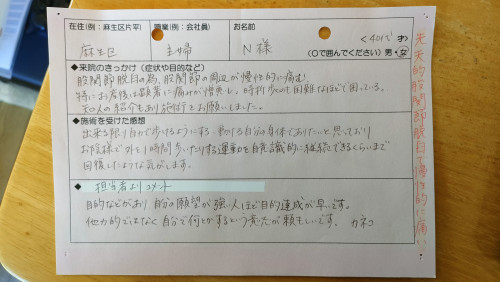 在住(例:麻生区片平) 職業(例:会社員) お名前
麻生区 主婦 N様 <40代>才
(○で囲んでください) 男・女
先天的股関節脱臼で慢性的に痛い
◆来院のきっかけ(症状や目的など)
股関節脱臼の為、股関節の周辺が慢性的に痛む
特にお産後は顕著に痛みが増大し、時折歩くのも困難なほどで困っている。
知人の紹介もあり施術をお願いしました。
◆施術を受けた感想
出来る限り自力で歩けるようにする、動ける自分の身体でありたいと思っており
お陰様で外を1時間歩いたりする運動を自発意識的に継続できるくらいまで
回復したような気がします。
◆ 担当者よりコメント
目的などがあり自分の願望が強い人ほど目的達成が早いです。
他力的ではなく自分で何とかするという意志が頼もしいです。 カネコ